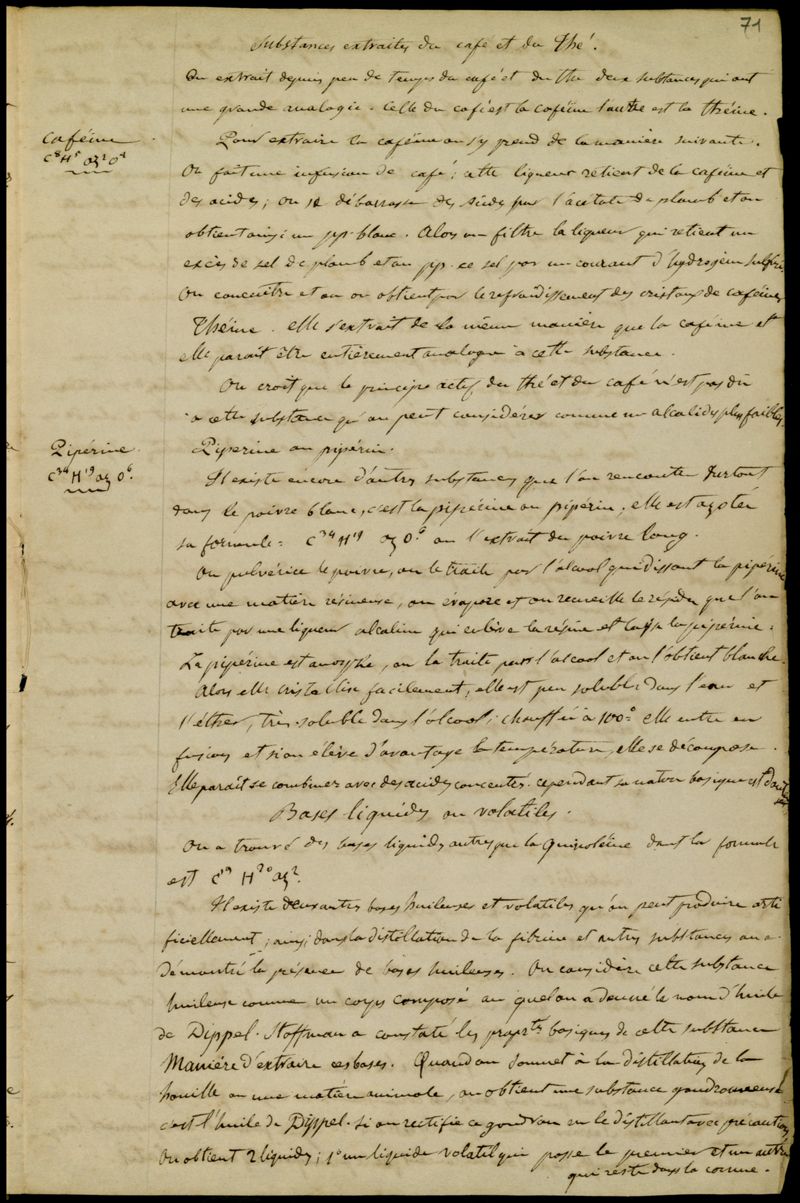 71
Substances extraites du café et du thé.
On extrait depuis peu de temps du café et du thé deux substances qui ont
une grande analogie. Celle du café est la caféine l'autre est la théine.
Caféine
C⁸H⁵ az² O²
Pour extraire la caféine on s'y prend de la manière suivante.
On fait une infusion de café; cette liqueur retient de la caféine et
des acides; on se débarrasse des acides par l'acétate de plomb et on
obtient ainsi un pp. blanc. Alors on filtre la liqueur qui retient un
excès de sel de plomb et on pp. ce sel par un courant d'hydrogène sulfuré
On concentre et on obtient par le refroidissement des cristaux de caféine.
Théine. elle s'extrait de la même manière que la caféine et
elle paraît être entièrement analogue à cette substance.
On croit que le principe actif du thé et du café n'est pas dû
à cette substance qu'on peut considérer comme un alcaloïde plus faible.
Pipérine
C³⁴ H¹⁹ az O⁶.
Piperine ou pipérin.
Il existe encore d'autres substances que l'on rencontre surtout
dans le poivre blanc, c'est la pipérine ou pipérin; elle est azotée
sa formule = C³⁴ H¹⁹ az O⁶ on l'extrait du poivre long.
On pulvérise le poivre, on le traite par l'alcool qui dissout la pipérine
avec une matière résineuse, on évapore et on recueille le résidu que l'on
traite par une liqueur alcaline qui enlève la résine et la pipérine.
La pipérine est amorphe, on la traite par l'alcool et on l'obtient blanche.
Alors elle cristallise facilement; elle est peu soluble dans l'eau et
l'éther, très soluble dans l'alcool; chauffée à 100° elle entre en
fusion et si on élève d'avantage la température, elle se décompose.
Elle paraît se combiner avec des acides concentrés. cependant sa nature basique est douteuse
Bases liquides ou volatiles.
On a trouvé des bases liquides autres que la Quinoléine dont la formule
est H²⁰ az².
Il existe deux autres bases huileuses et volatiles qu'on peut produire arti
ficiellement; ainsi dans la distillation de la fibrine et autres substances on a
démontré la présence de bases huileuses. On considère cette substance
huileuse comme un corps composé auquel on a donné le nom d'huile
de Dippel. Hoffman a constaté les propr.tés basiques de cette substance
Manière d'extraire ces bases. Quand on soumet à la distillation de la
houille ou une matière animale, on obtient une substance goudronneuse
c'est l'huile de Dippel. si on rectifie ce goudron en le distillant avec précaution
on obtient 2 liquides; 1° un liquide volatil qui passe le premier et un autre
qui reste dans la cornue.